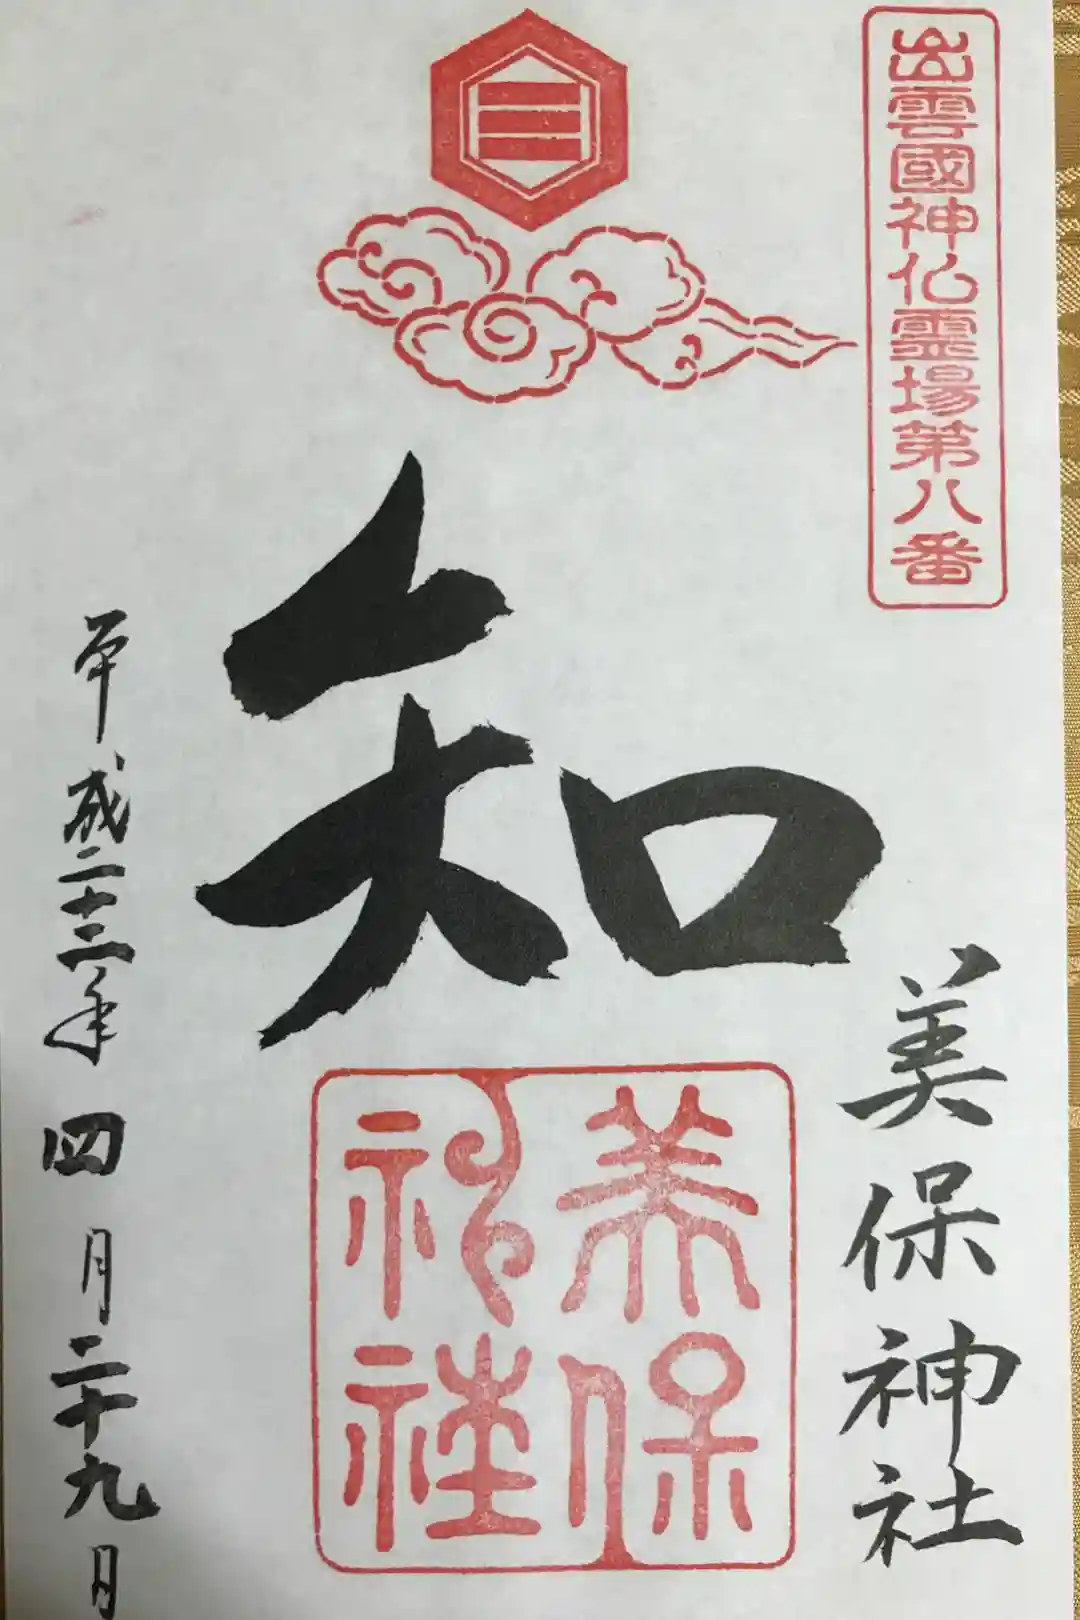 出雲國神仏霊場第八番
美保神社
知
美保
神社
平成二十二年四月二十九日